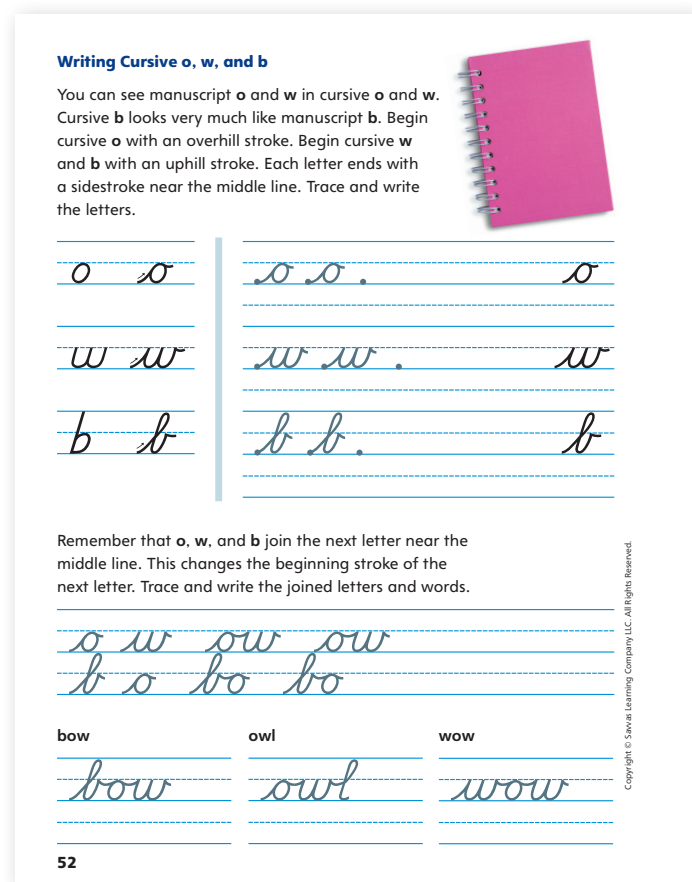 Writing Cursive o, w, and b
You can see manuscript o and w in cursive o and w.
Cursive b looks very much like manuscript b. Begin
cursive o with an overhill stroke. Begin cursive w
and b with an uphill stroke. Each letter ends with
a sidestroke near the middle line. Trace and write
the letters.
o o o o o
w w w w w
b b b b b
Remember that o, w, and b join the next letter near the
middle line. This changes the beginning stroke of the
next letter. Trace and write the joined letters and words.
o w ow ow
b o bo bo
bow owl wow
bow owl wow
52
Copyright © Savvas Learning Company LLC. All Rights Reserved.